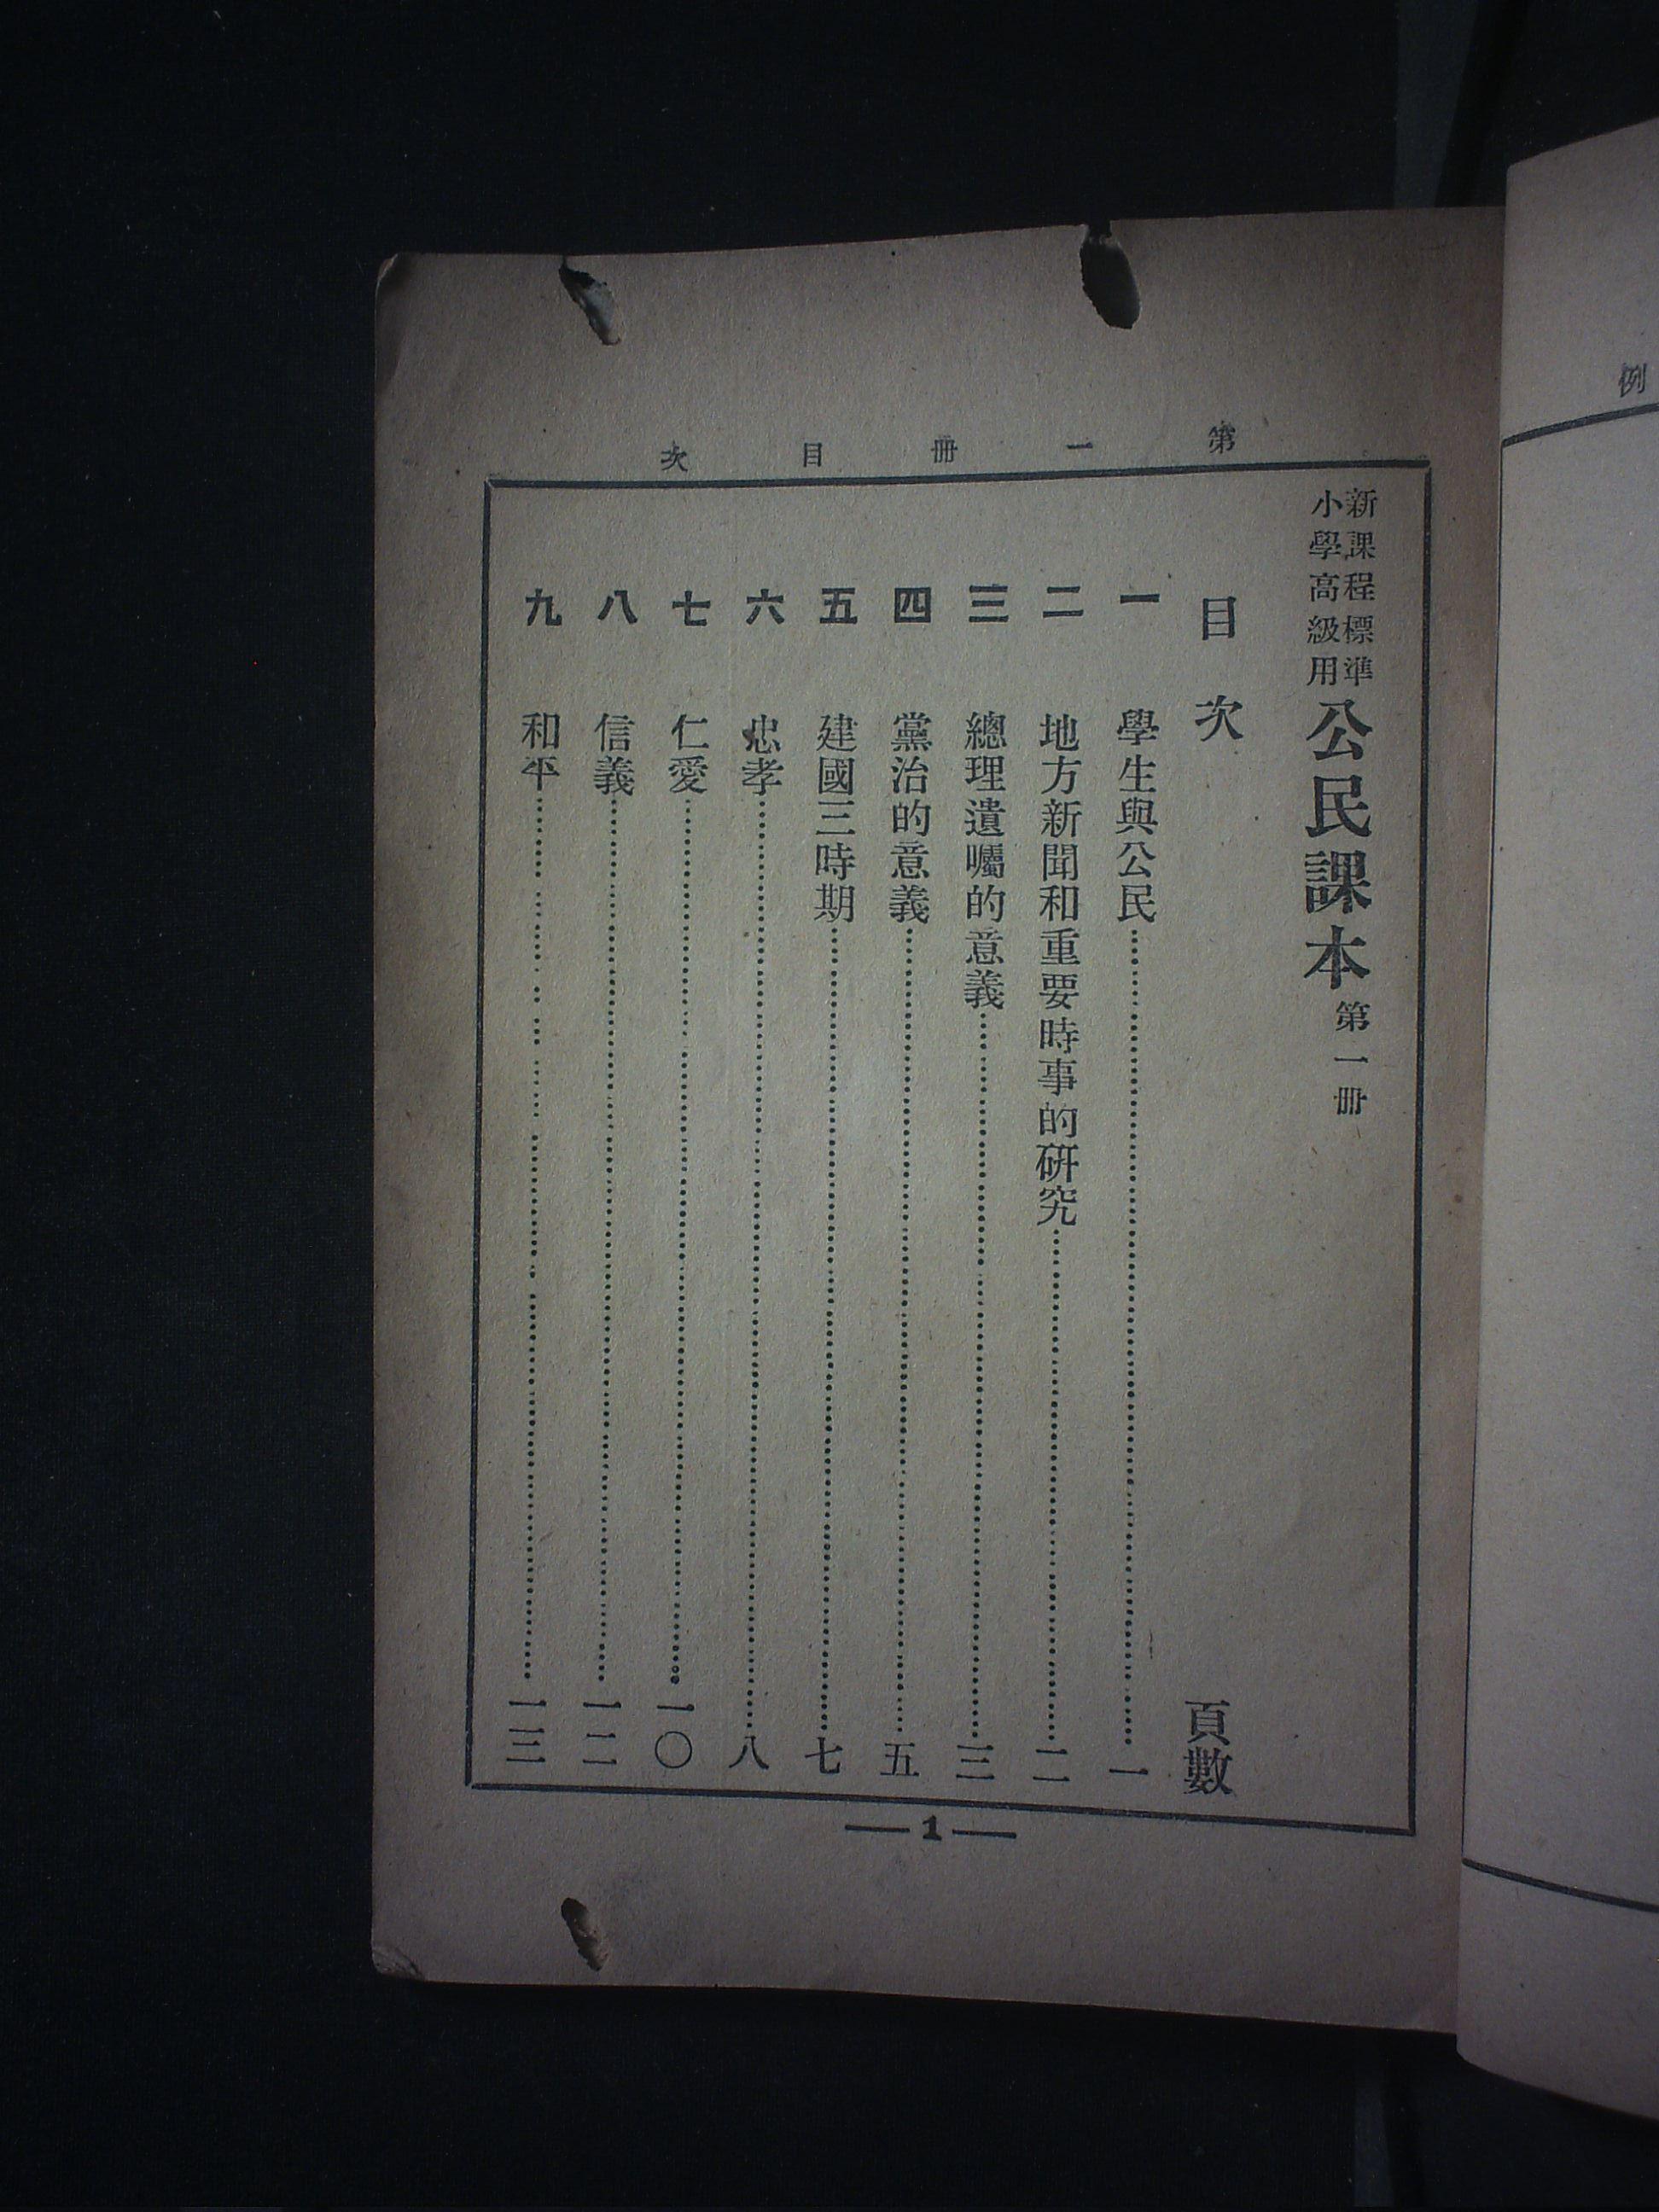 第一冊目次
新課程標準
小學高級用
公民課本 第一冊
目次 頁數
一 學生與公民 一
二 地方新聞和重要時事的研究 二
三 總理遺囑的意義 三
四 黨治的意義 五
五 建國三時期 七
六 忠孝 八
七 仁愛 一〇
八 信義 一二
九 和平 一三
— 1 —
例